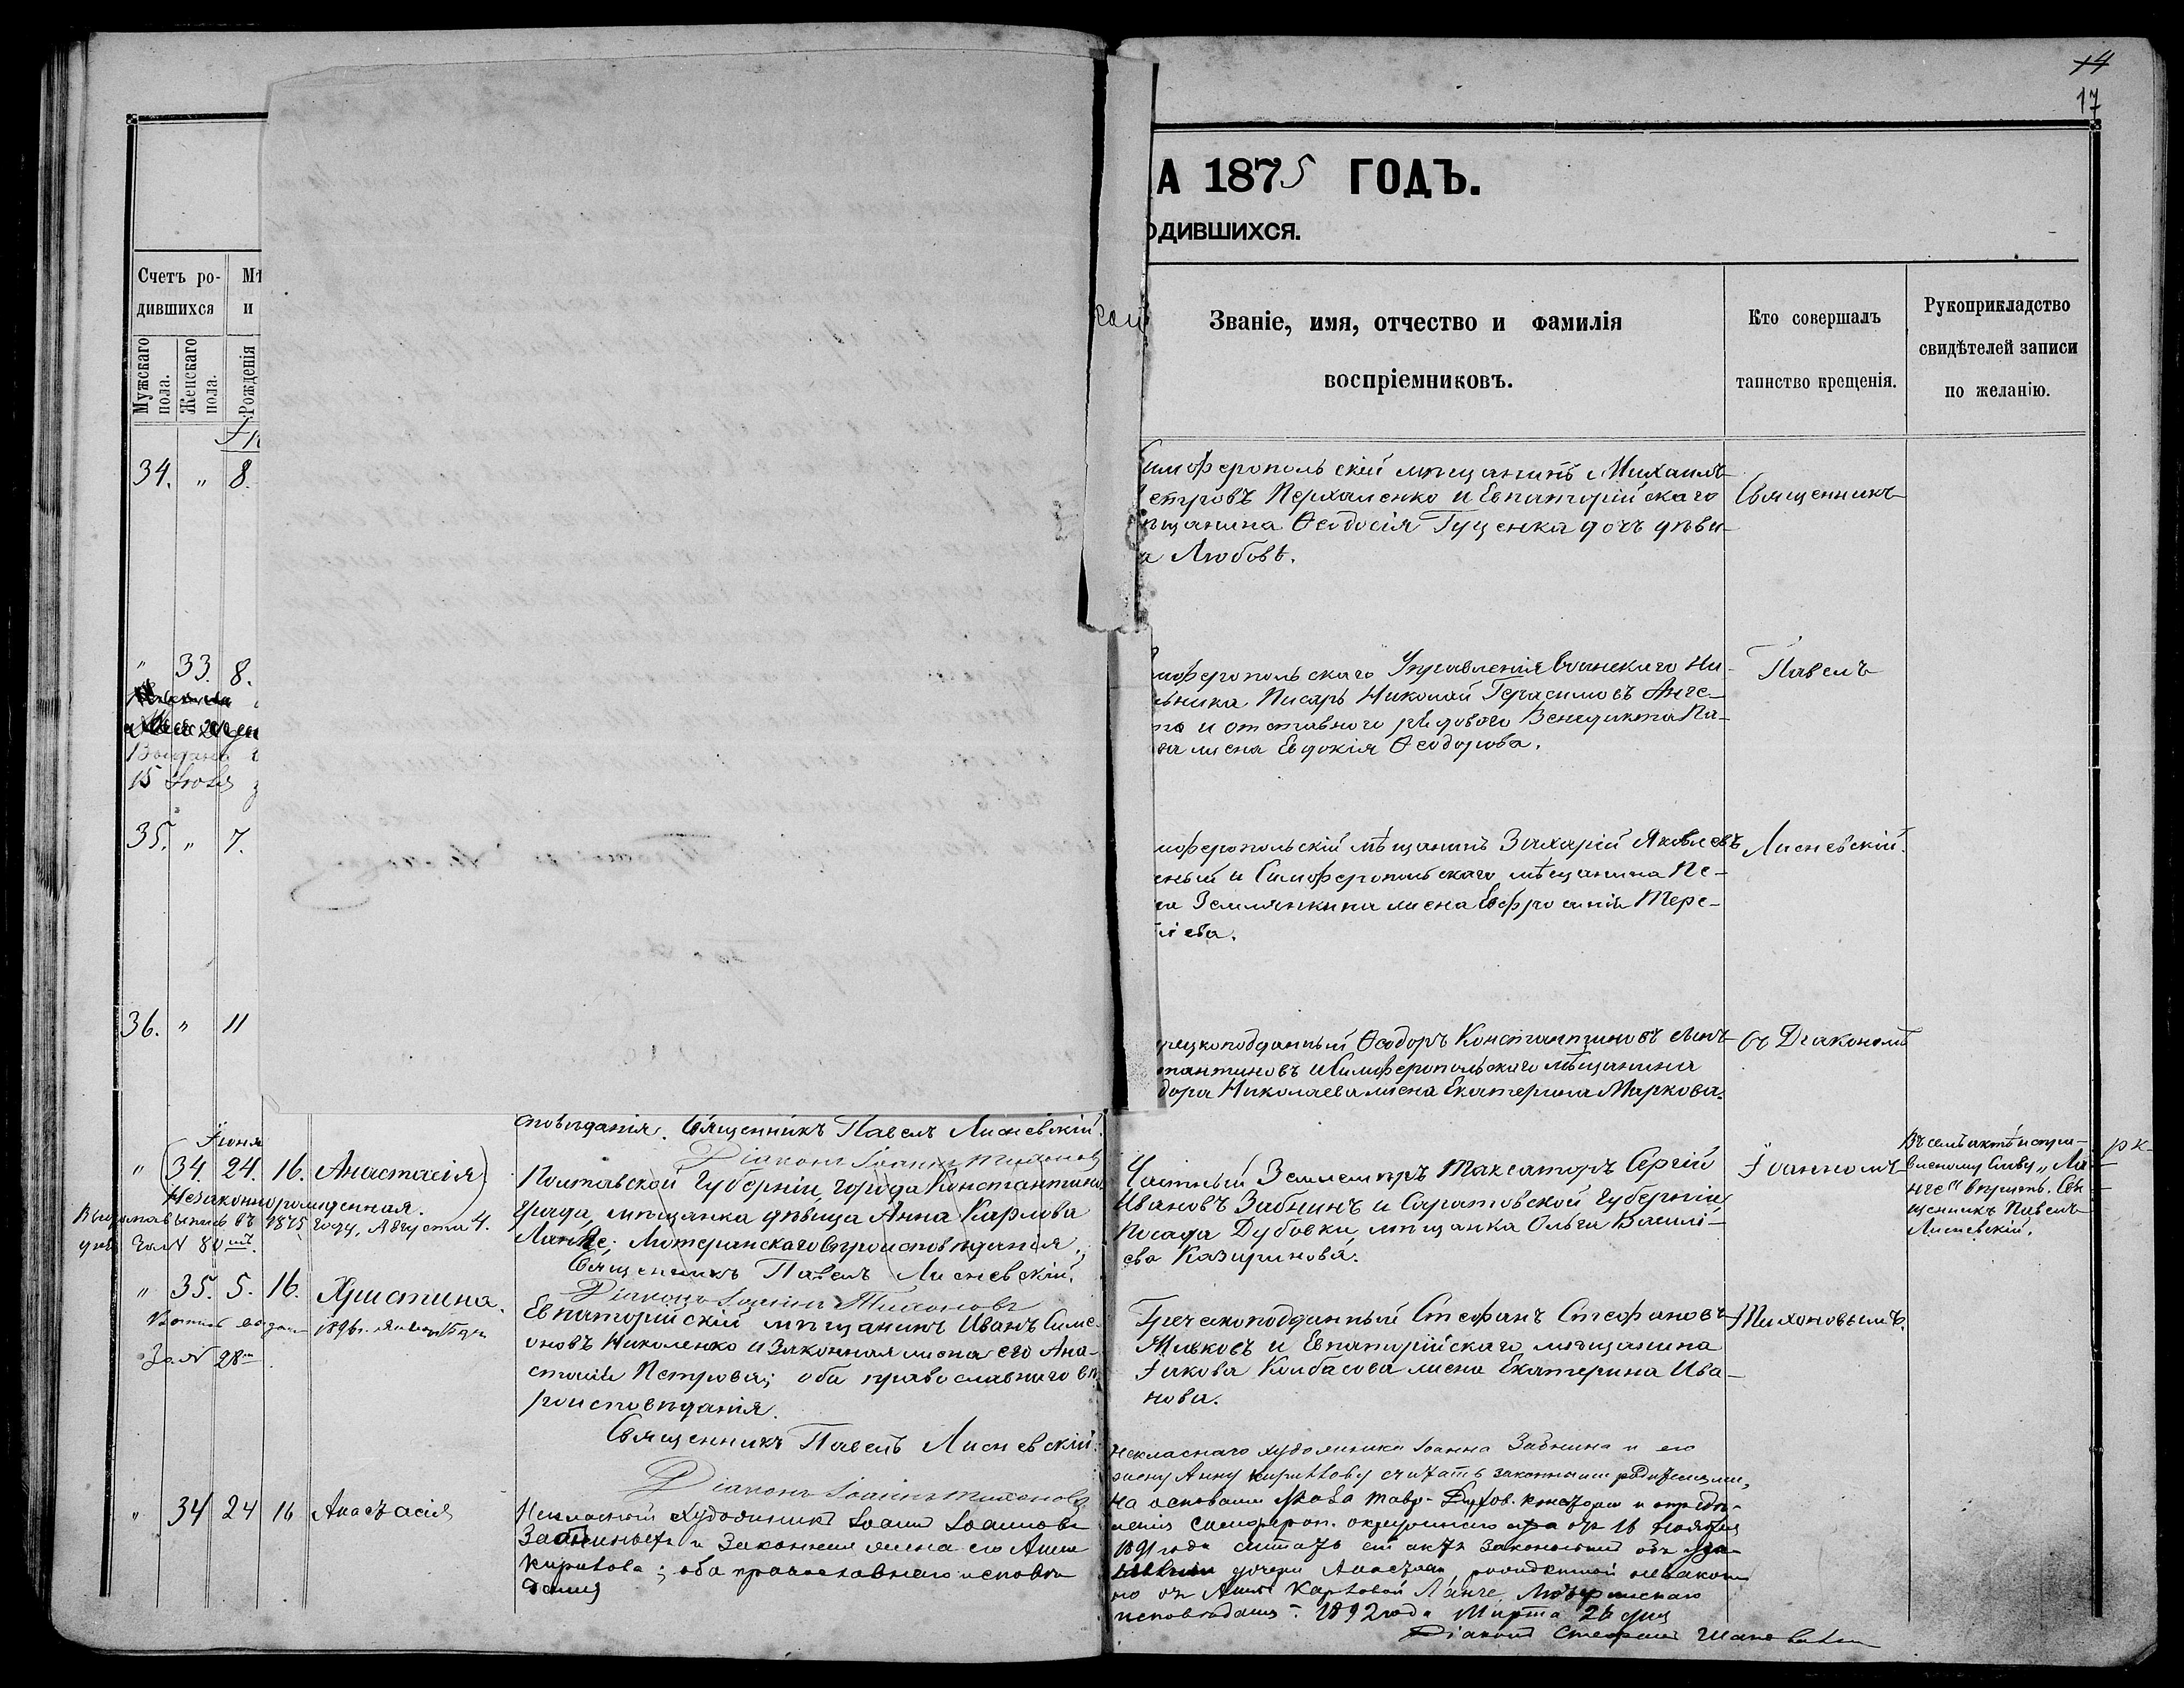 14
17
А 1875 ГОДЪ.
ОДИВШИХСЯ.
Счетъ ро-
дившихся
Мѣ
и
Мужскаго пола.
Женскаго пола.
Рожденія
Званіе, имя, отчество и фамилія
воспріемниковъ.
Кто совершалъ
таинство крещенія.
Рукоприкладство
свидѣтелей записи
по желанію.
34. „ 8.
имферопольскій мѣщанинъ Михаилъ
етровъ Пархоменко и Евпаторійскаго
щанина Ѳеодосія Гуценка дочь дѣви-
а Любовь.
Священникъ
„ 33. 8.
15 Іюля
мферопольскаго Управленія Воинскаго На-
ьника Писарь Николай Герасимовъ Анге-
и отставного рядового Венедикта Па-
жена Евдокія Ѳеодорова.
Павелъ
35. „ 7.
мферопольскій мѣщанинъ Захарій Яковлевъ
и Симферопольскаго мѣщанина Пе-
Землянкина жена Евфросинія Тере-
ьева.
Лисневскій.
36. „ 11
рецкоподданный Ѳеодоръ Константиновъ сынъ
тантиновъ и Симферопольскаго мѣщанина
дора Николаева жена Екатерина Маркова.
съ Діакономъ
сповѣданія. Священникъ Павелъ Лисневскій.
Діаконъ Іоаннъ Тихоновъ
Іюня
„ (34. 24. 16. Анастасія)
Незаконнорожденная.
въ 1875 году, Августа 4.
дня за № 80
Полтавской Губерніи, города Константино-
града, мѣщанка дѣвица Анна Карлова
Ланге; Лютеранскаго вѣроисповѣданія.
Священникъ Павелъ Лисневскій.
Діаконъ Іоаннъ Тихоновъ
Частный Землемѣръ Таксаторъ Сергій
Ивановъ Забнинъ и Саратовской губерніи
Посада Дубовки мѣщанка Ольга Василі-
ева Казиринова.
Іоанномъ
Въ семъ актѣ исправ-
ленному слову „Ла-
нге“ вѣрить. Свя
щенникъ Павелъ
Лисневскій.
„ 35. 5. 16. Христина.
1896 г.
За № 28
Евпаторійскій мѣщанинъ Иванъ Симе-
оновъ Николенко и законная жена его Ана-
стасія Петрова; оба православнаго вѣ-
роисповѣданія.
Священникъ Павелъ Лисневскій.
Діаконъ Іоаннъ Тихоновъ
Греческоподданный Стефанъ Стефановъ
Мильковъ и Евпаторійскаго мѣщанина
Іякова Колбасова жена Екатерина Ива-
нова.
Тихоновымъ.
„ 34 24 16 Анастасія
Некласный художникъ Іоаннъ Іоанновъ
и законная жена его Анна
Карлова; оба православнаго исповѣ
данія
Некласнаго художника Іоанна Забнина и его
жену Анну Карлову считать законными родителями,
на основаніи Указа Тавр. Духов. Консторіи и опредѣ-
ленія Симфероп. окружнаго суда отъ 16 Ноября
1891 года считать сей актъ законнымъ объ
дочери Анастасіи рожденной незакон
но отъ Анны Карловой Ланге, Лютеранскаго
исповѣданія. 1892 года Марта 26 дня
Діаконъ Стефанъ